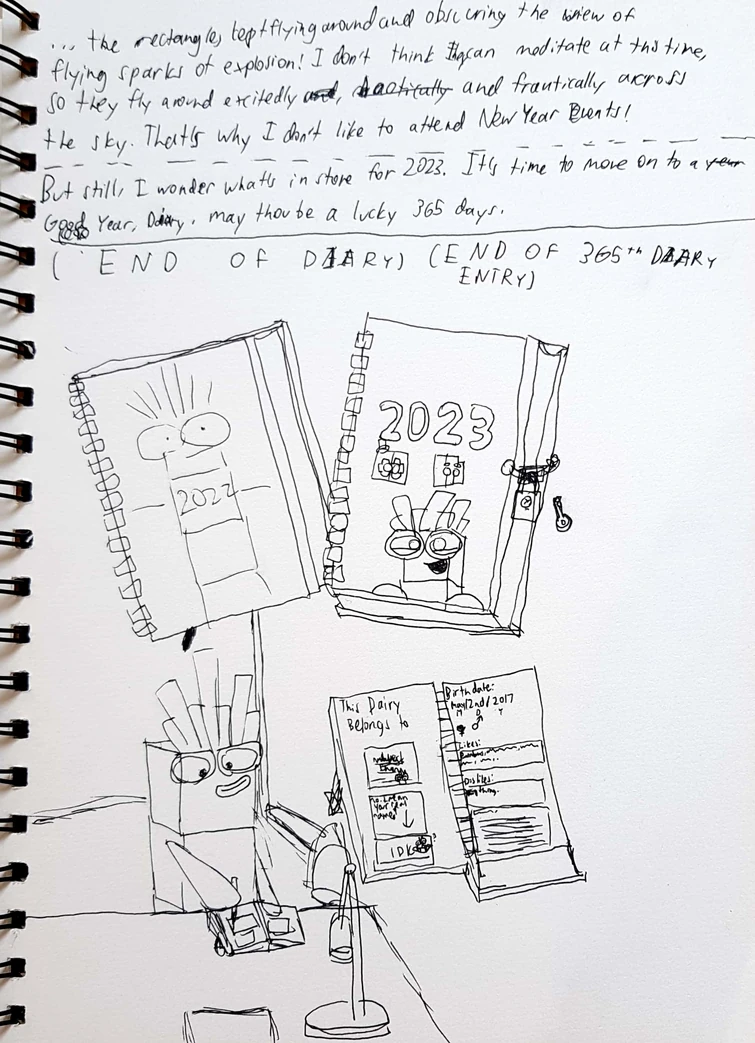 ... the rectangles kept flying around and obscuring the view of
flying sparks of explosion! I don't think can meditate at this time,
so they fly around excitedly and, and frantically across
the sky. That's why I don't like to attend New Year Events!
But still, I wonder what's in store for 2023. It's time to move on to a year
Good Year, Diary. may thou be a lucky 365 days.
( END OF DIARY) (END OF 365th DIARY
ENTRY)
2022
2023
This Dairy
Belongs to
No. I mean
your real
name
IDK
Birthdate:
May/2nd/2017
M D Y
Likes:
Dislikes: